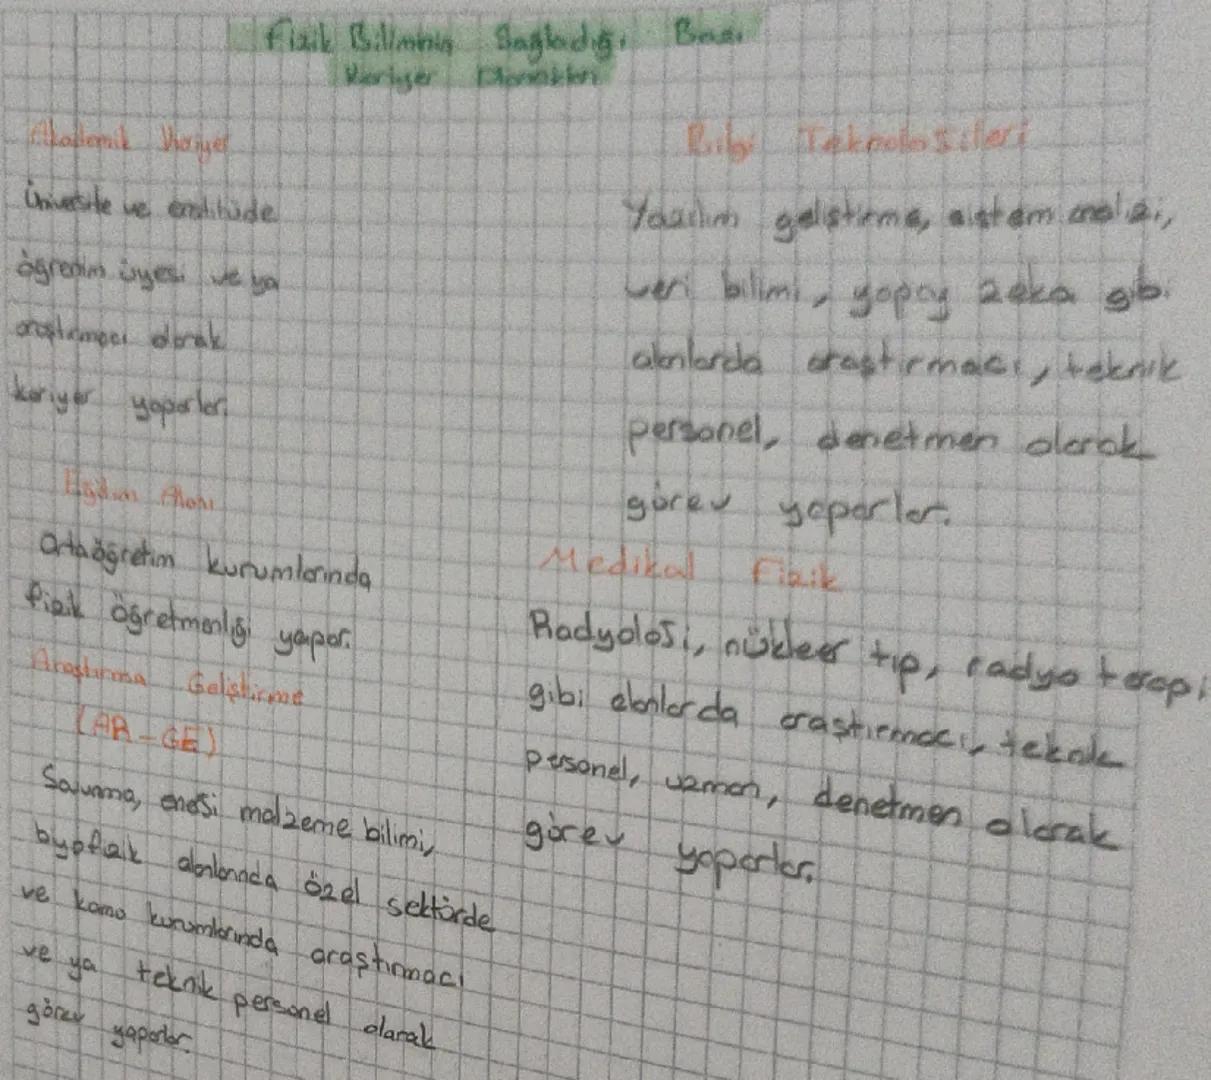 Fizik Biliminin Sağladığı Bazı
Kariyer
Akademik Kariyer
Üniversite ve enstitüde
öğrenim üyesi ve ya
araştırmacı olarak
kariyer yaparlar.
Eğitim Alanı
Ortaöğretim kurumlarında
fizik öğretmenliği yapar.
Araştırma Geliştirme
(AR-GE)
Savunma, enerji malzeme bilimi,
byofizik alanlarında özel sektörde
ve kamo kurumlarında araştırmacı
ve ya teknik personel olarak
görev yaparlar.
Bilgi Teknolojileri
Yazılım geliştirme, sistem analizi,
veri bilimi, yapay zeka gibi
alanlarda araştırmacı, teknik
personel, denetmen olarak
görev yaparlar.
Medikal Fizik
Radyoloji, nükleer tıp, radyo terapi
gibi alanlarda araştırmacı, teknik
personel, uzman, denetmen olarak
görev yaparlar.